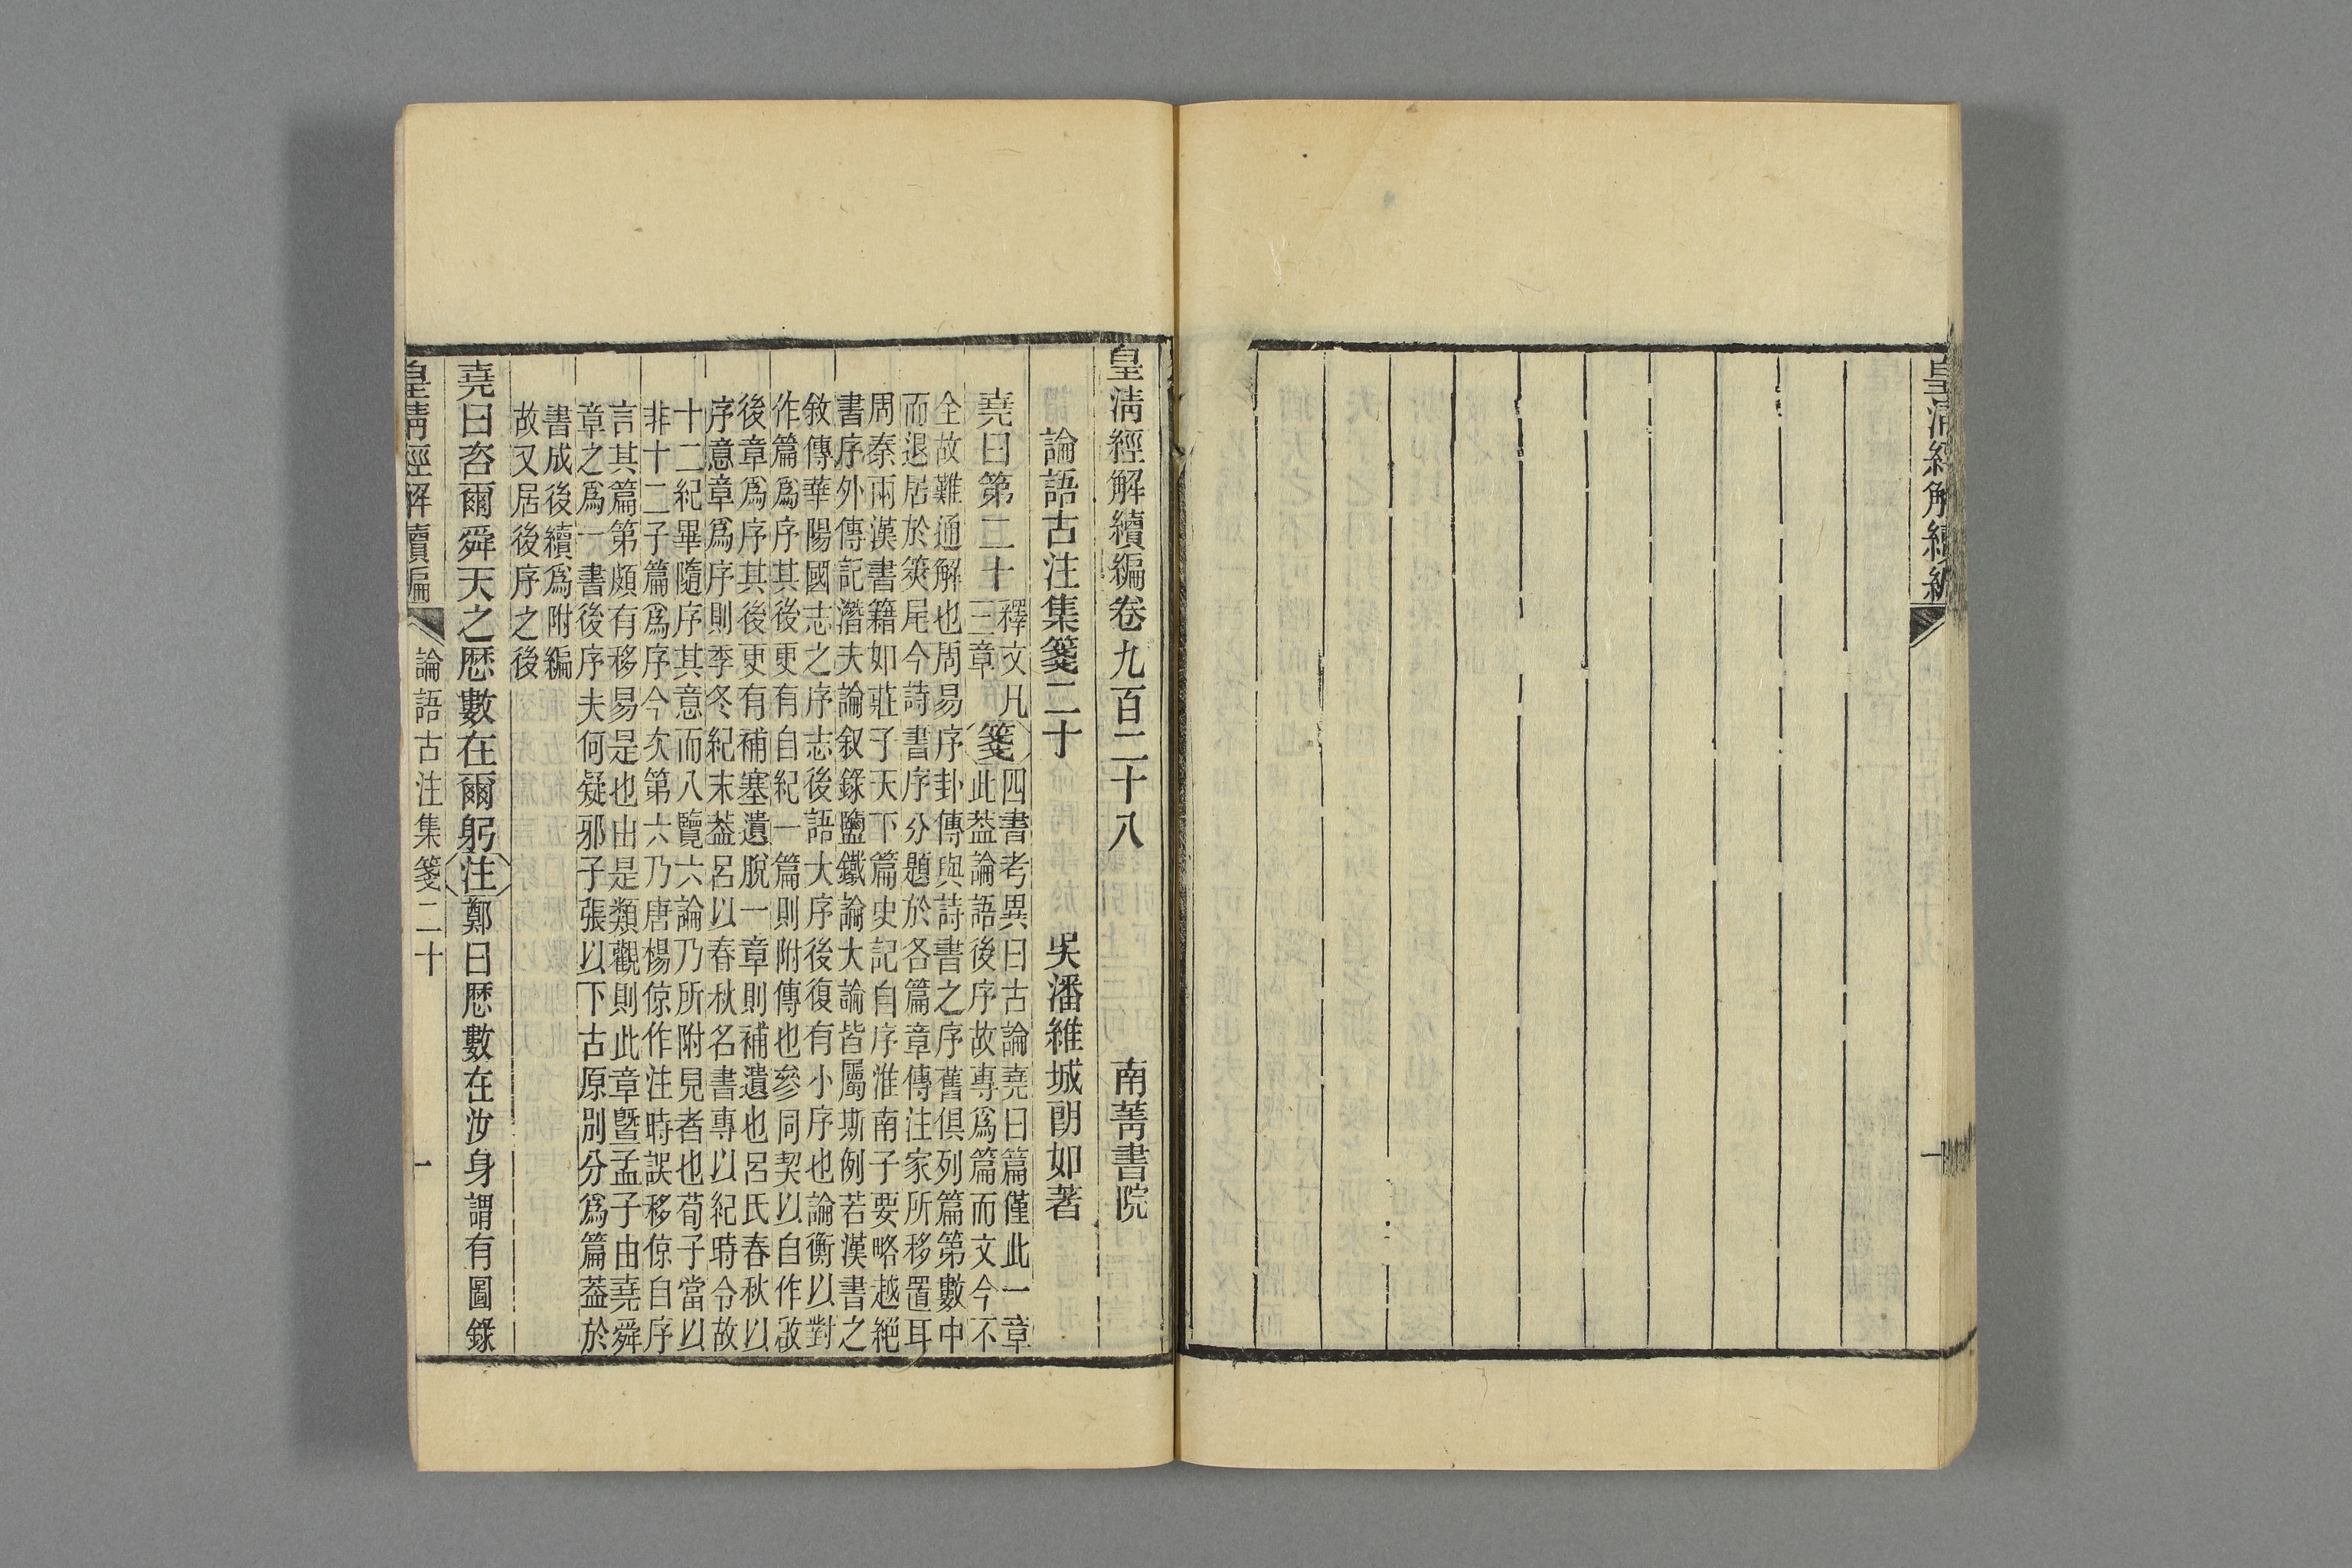 皇清經解續編
一
皇清經解續編卷九百二十八　南菁書院
論語古注集箋二十　吳潘維城朗如著
堯曰第二十
釋文凡
三章
箋
四書考異曰古論堯曰篇僅此一章
此葢論語後序故專爲篇而文今不
全故難通解也周易序卦傳與詩書之序舊俱列篇第數中
而退居於筴尾今詩書序分題於各篇章傳注家所移置耳
周秦兩漢書籍如莊子天下篇史記自序淮南子要略越絶
書序外傳記潛夫論叙錄鹽鐵論大論皆屬斯例若漢書之
敘傳華陽國志之序志後語大序後復有小序也論衡以對
作篇爲序其後更有自紀一篇則附傳也參同契以自作啟
後章爲序其後更有補塞遺脫一章則補遺也呂氏春秋以
序意章爲序則季冬紀末葢呂以春秋名書專以紀時令故
十二紀畢隨序其意而八覽六論乃所附見者也荀子當以
非十二子篇爲序今次第六乃唐楊倞作注時誤移倞自序
言其篇第頗有移易是也由是類觀則此章曁孟子由堯舜
章之爲一書後序夫何疑邪子張以下古原別分爲篇葢於
書成後續爲附編
故又居後序之後
堯曰咨爾舜天之厯數在爾躬注鄭曰厯數在汝身謂有圖錄
皇清經解續編　論語古注集箋二十　一